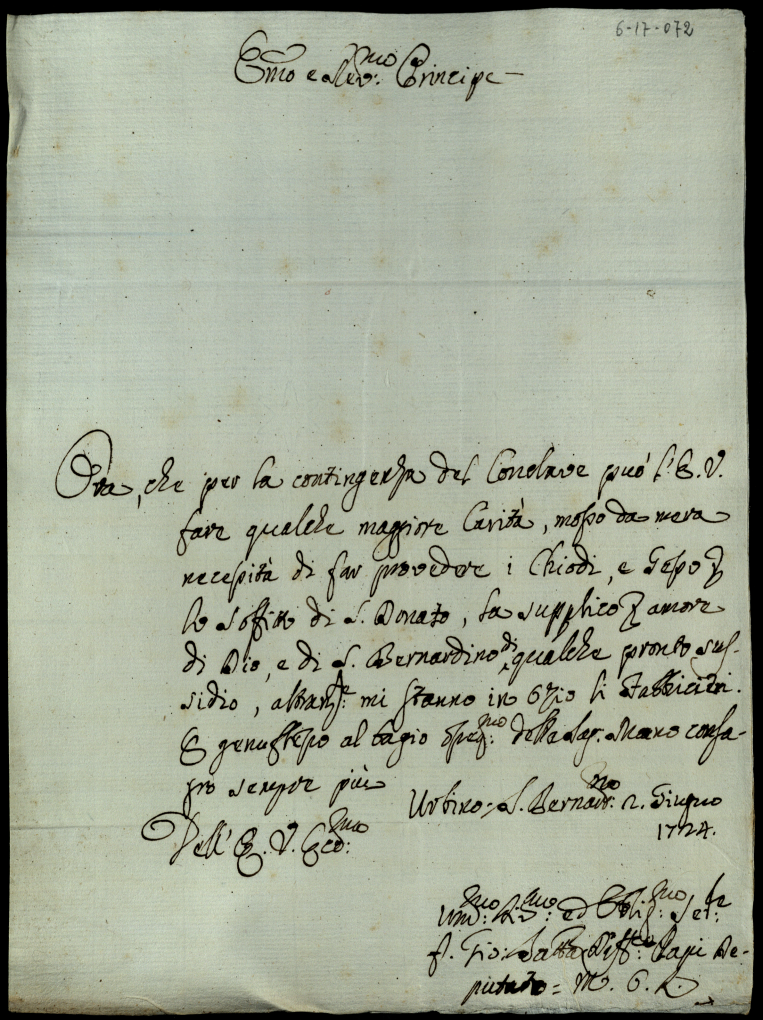 6-17-072
Emo e Rev:mo Principe
Ora, che per la contingenza del Conclave può l'E. V.
fare qualche maggiore Carità, mosso da mera
necessità di far provedere i Chiodi, e Gesso p
lo soffitto di S. Donato, la supplico p amore
di Dio, e di S. Bernardino di qualche pronto sus-
sidio, altram:te mi stanno in ozio li Fabbricieri.
E genuflesso al bagio della Sag: Mano consa-
gro sempre più
Urbino: S. Bernard:no 2. Giugno
1724.
Dell' E. V.
Um:mo ed Obblig:mo Ser:re
f. Gio: Batta Papi De-
putato = M. O. R.